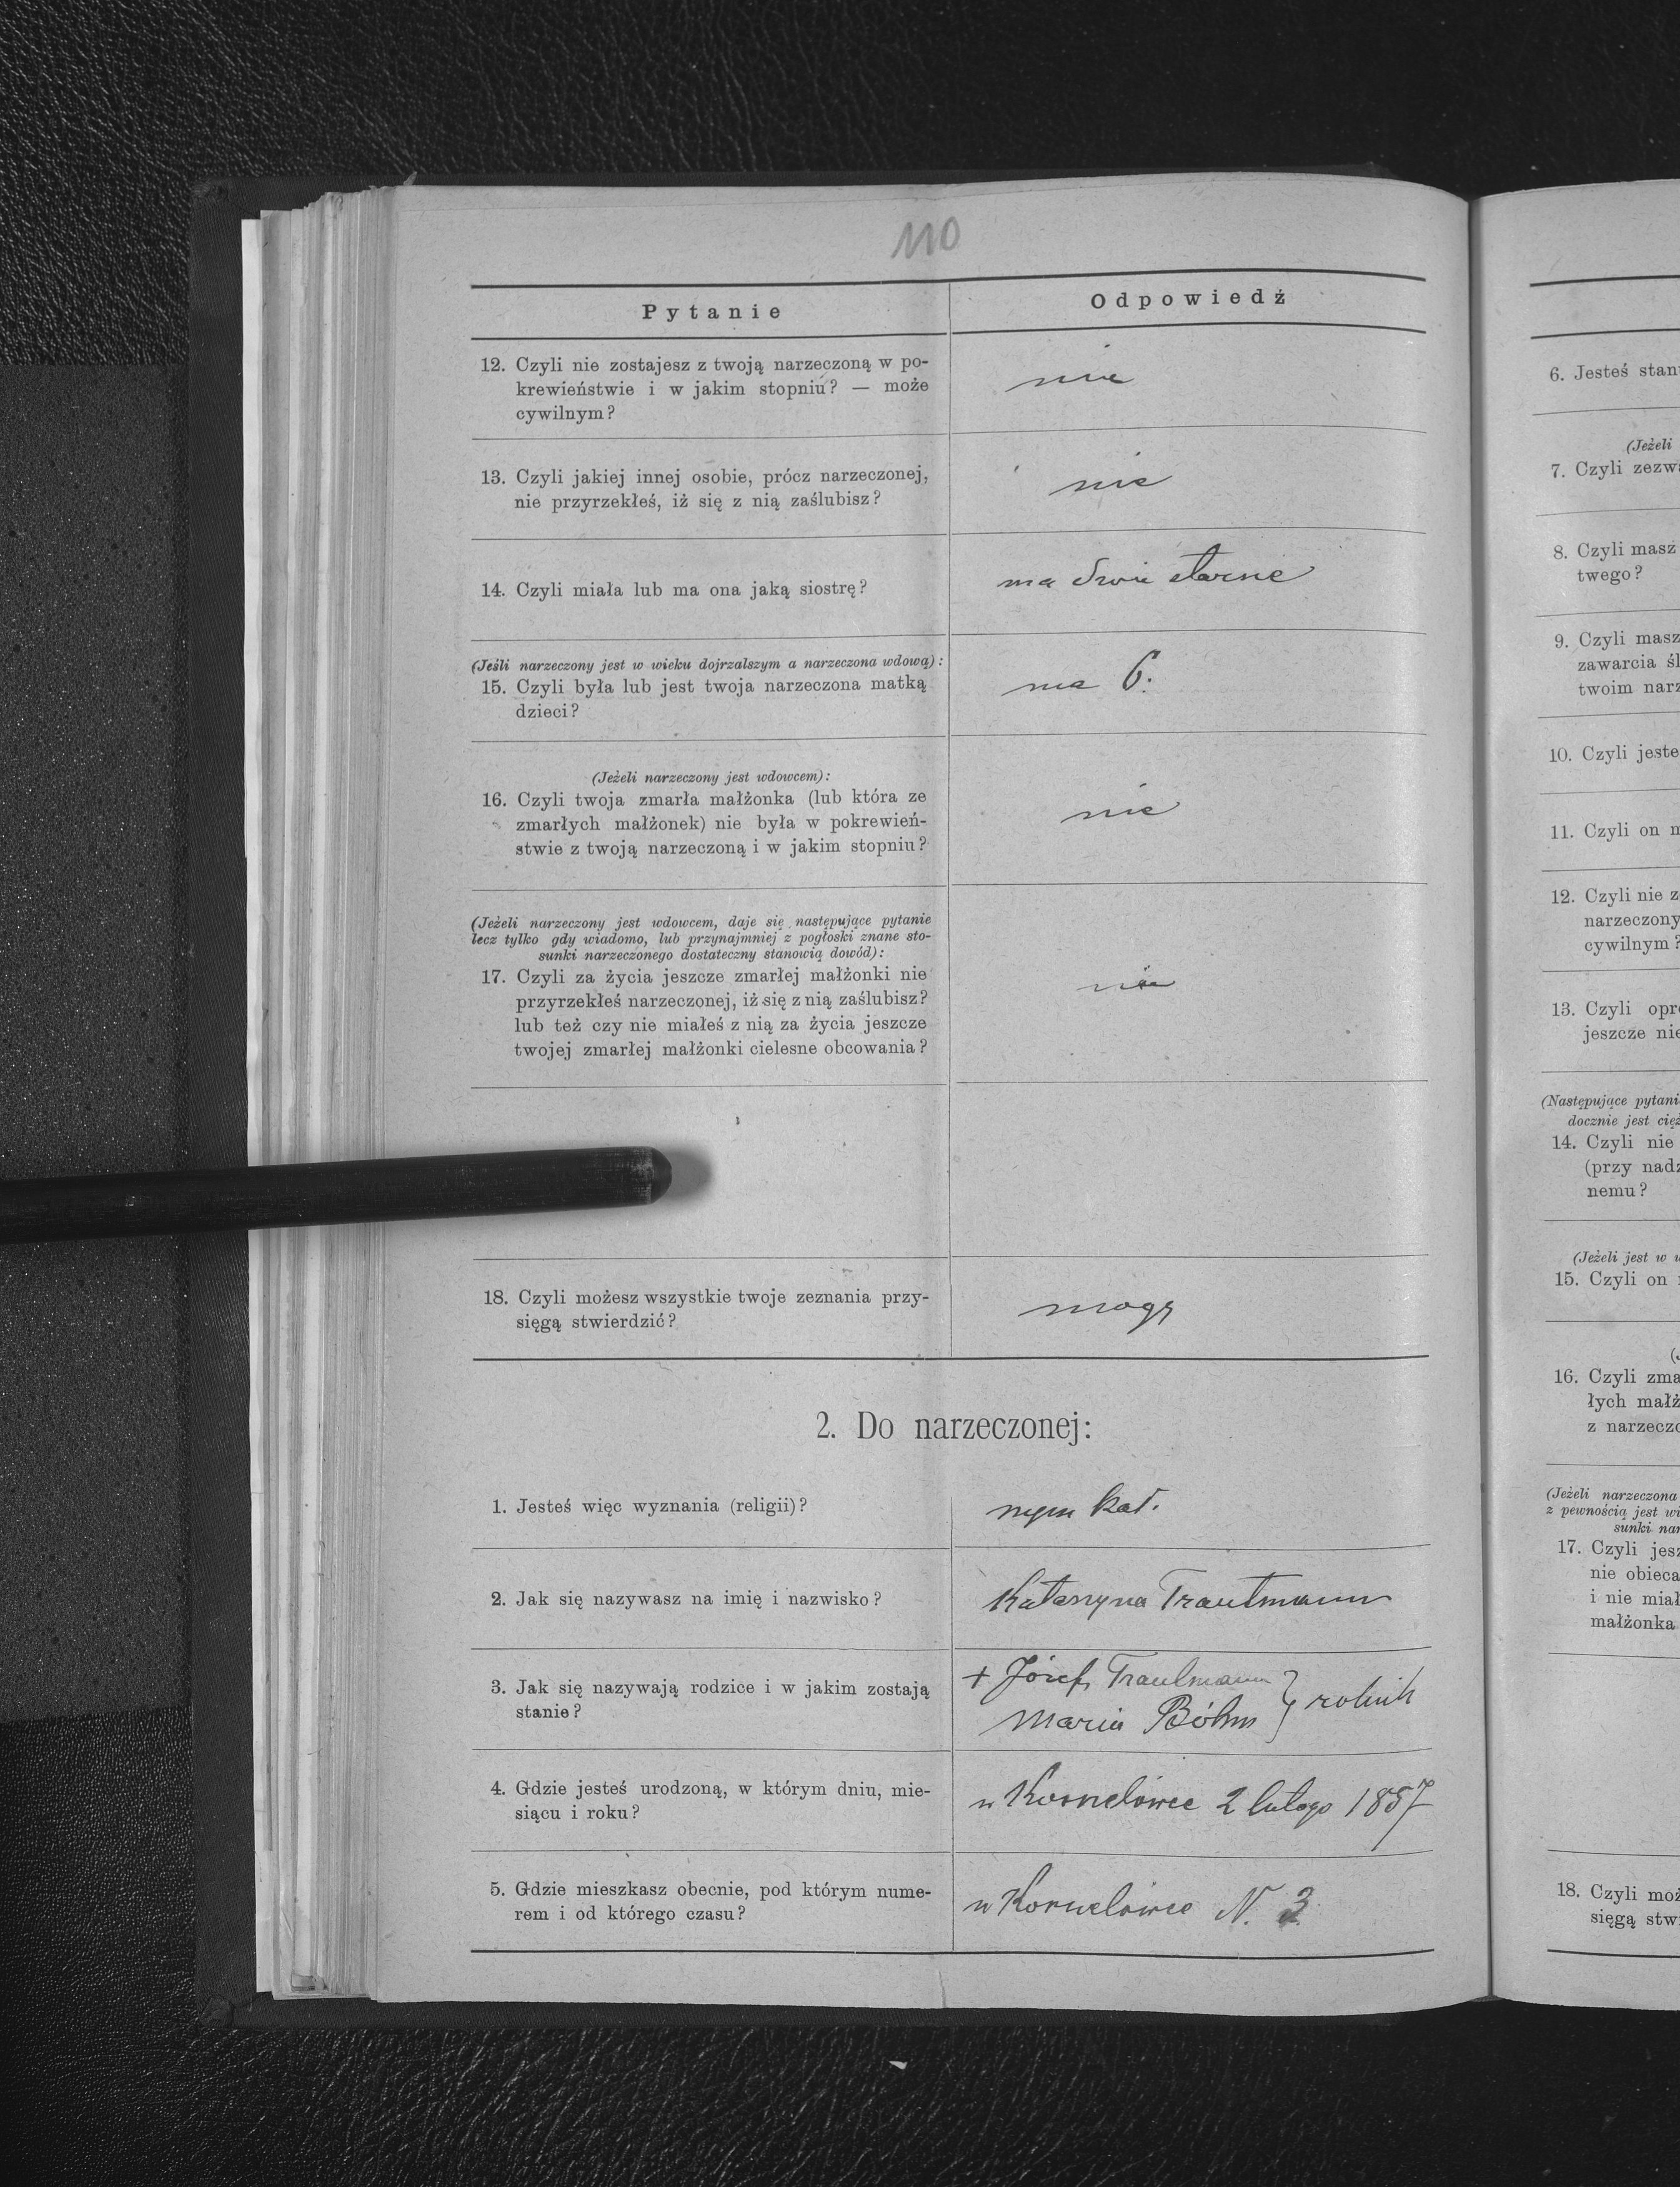 110
Pytanie
Odpowiedź
12. Czyli nie zostajesz z twoją narzeczoną w po-
krewieństwie i w jakim stopniu? — może
cywilnym?
nie
13. Czyli jakiej innej osobie, prócz narzeczonej,
nie przyrzekłeś, iż się z nią zaślubisz?
nie
14. Czyli miała lub ma ona jaką siostrę?
ma dwie starsze
(Jeśli narzeczony jest w wieku dojrzalszym a narzeczona wdową):
15. Czyli była lub jest twoja narzeczona matką
dzieci?
ma 6.
(Jeżeli narzeczony jest wdowcem):
16. Czyli twoja zmarła małżonka (lub która ze
zmarłych małżonek) nie była w pokrewień-
stwie z twoją narzeczoną i w jakim stopniu?
nie
(Jeżeli narzeczony jest wdowcem, daje się następujące pytanie
lecz tylko gdy wiadomo, lub przynajmniej z pogłoski znane sto-
sunki narzeczonego dostateczny stanowią dowód):
17. Czyli za życia jeszcze zmarłej małżonki nie
przyrzekłeś narzeczonej, iż się z nią zaślubisz?
lub też czy nie miałeś z nią za życia jeszcze
twojej zmarłej małżonki cielesne obcowania?
nie
18. Czyli możesz wszystkie twoje zeznania przy-
sięgą stwierdzić?
mogę
2. Do narzeczonej:
1. Jesteś więc wyznania (religii)?
rzym kat.
2. Jak się nazywasz na imię i nazwisko?
Katarzyna Trautmann
3. Jak się nazywają rodzice i w jakim zostają
stanie?
+ Józef Trautmann
Maria Böhm } rolnik
4. Gdzie jesteś urodzoną, w którym dniu, mie-
siącu i roku?
w Kornelówce 2 lutego 1857
5. Gdzie mieszkasz obecnie, pod którym nume-
rem i od którego czasu?
w Kornelówce N. 3
6. Jesteś stan
(Jeżeli
7. Czyli zezw
8. Czyli masz
twego?
9. Czyli masz
zawarcia śl
twoim narz
10. Czyli jeste
11. Czyli on m
12. Czyli nie z
narzeczony
cywilnym?
13. Czyli opr
jeszcze nie
(Następujące pytani
docznie jest cięż
14. Czyli nie
(przy nadz
nemu?
(Jeżeli jest w
15. Czyli on
16. Czyli zma
łych małż
z narzeczo
(Jeżeli narzeczona
z pewnością jest wi
sunki nar
17. Czyli jesz
nie obieca
i nie miał
małżonka
18. Czyli moż
sięgą stw